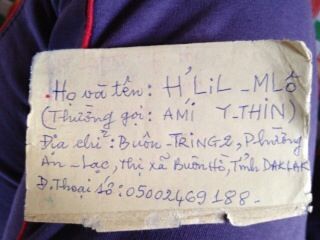 Họ và tên: H'LiL - MLÔ
(Thường gọi: AMÍ Y-THIN)
Địa chỉ: Buôn-TRING2, Phường
An-Lạc, Thị xã Buôn Hồ, Tỉnh DAKLAK
Đ.Thoại số: 05002469188-